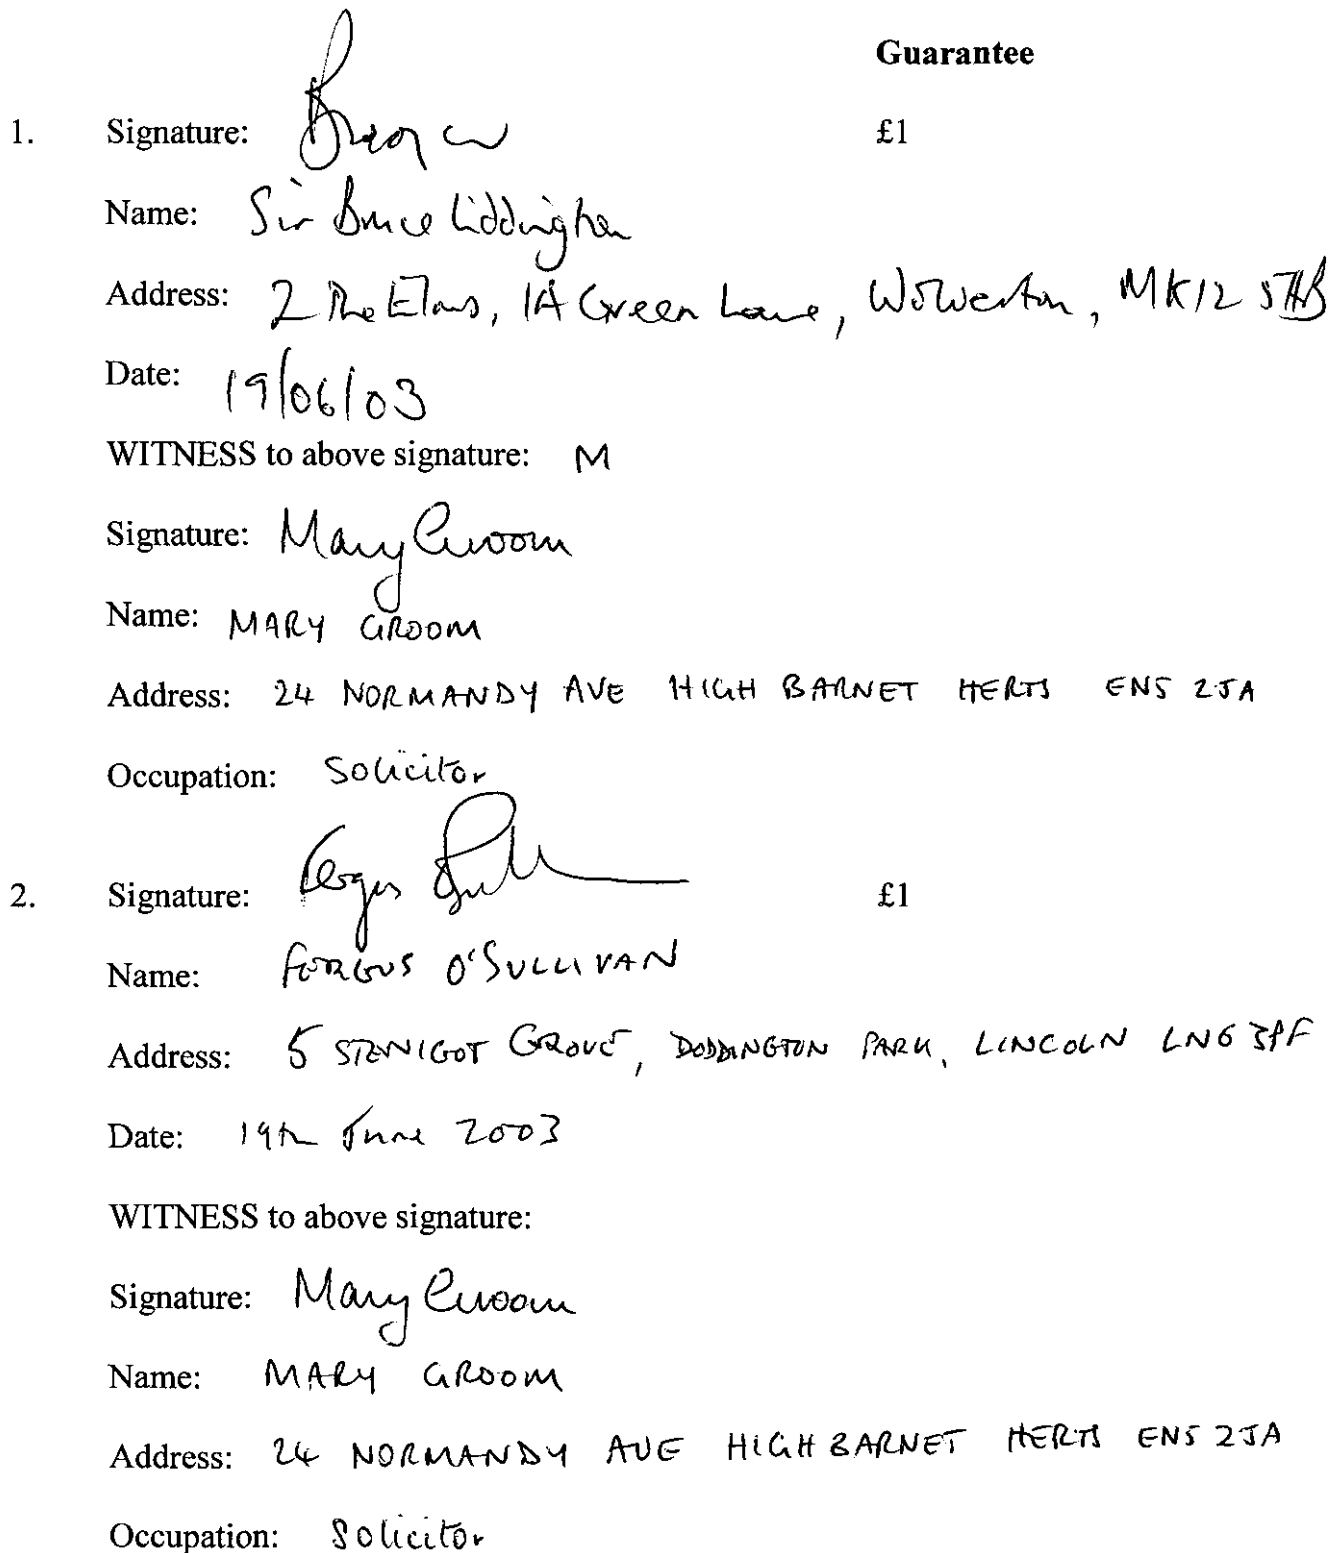 Guarantee
1. Signature: £1
Name: Sir Bruce Liddington
Address: 2 The Elms, 1A Green Lane, Wolverton, MK12 5HB
Date: 19/06/03
WITNESS to above signature: M
Signature: Mary Groom
Name: MARY GROOM
Address: 24 NORMANDY AVE HIGH BARNET HERTS EN5 2JA
Occupation: Solicitor
2. Signature: Fergus £1
Name: FERGUS O'SULLIVAN
Address: 5 STENIGOT GROVE, DODDINGTON PARK, LINCOLN LN6 3PF
Date: 19th June 2003
WITNESS to above signature:
Signature: Mary Groom
Name: MARY GROOM
Address: 24 NORMANDY AVE HIGH BARNET HERTS EN5 2JA
Occupation: Solicitor